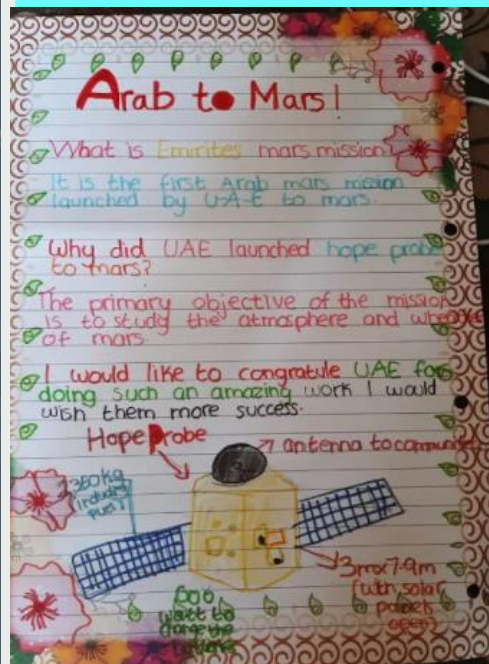 Arab to Mars!
What is Emirites mars mission?
It is the first Arab mars mission
launched by U-A-E to mars.
Why did UAE launched hope probe
to mars?
The primary objective of the mission
is to study the atmosphere and
of mars.
I would like to congratule UAE for
doing such an amazing work I would
wish them more success.
Hope Probe
antenna to
1350kg
including
fuel
3m x 7.9m
(with solar
panels
open)
600
watt to
charge the